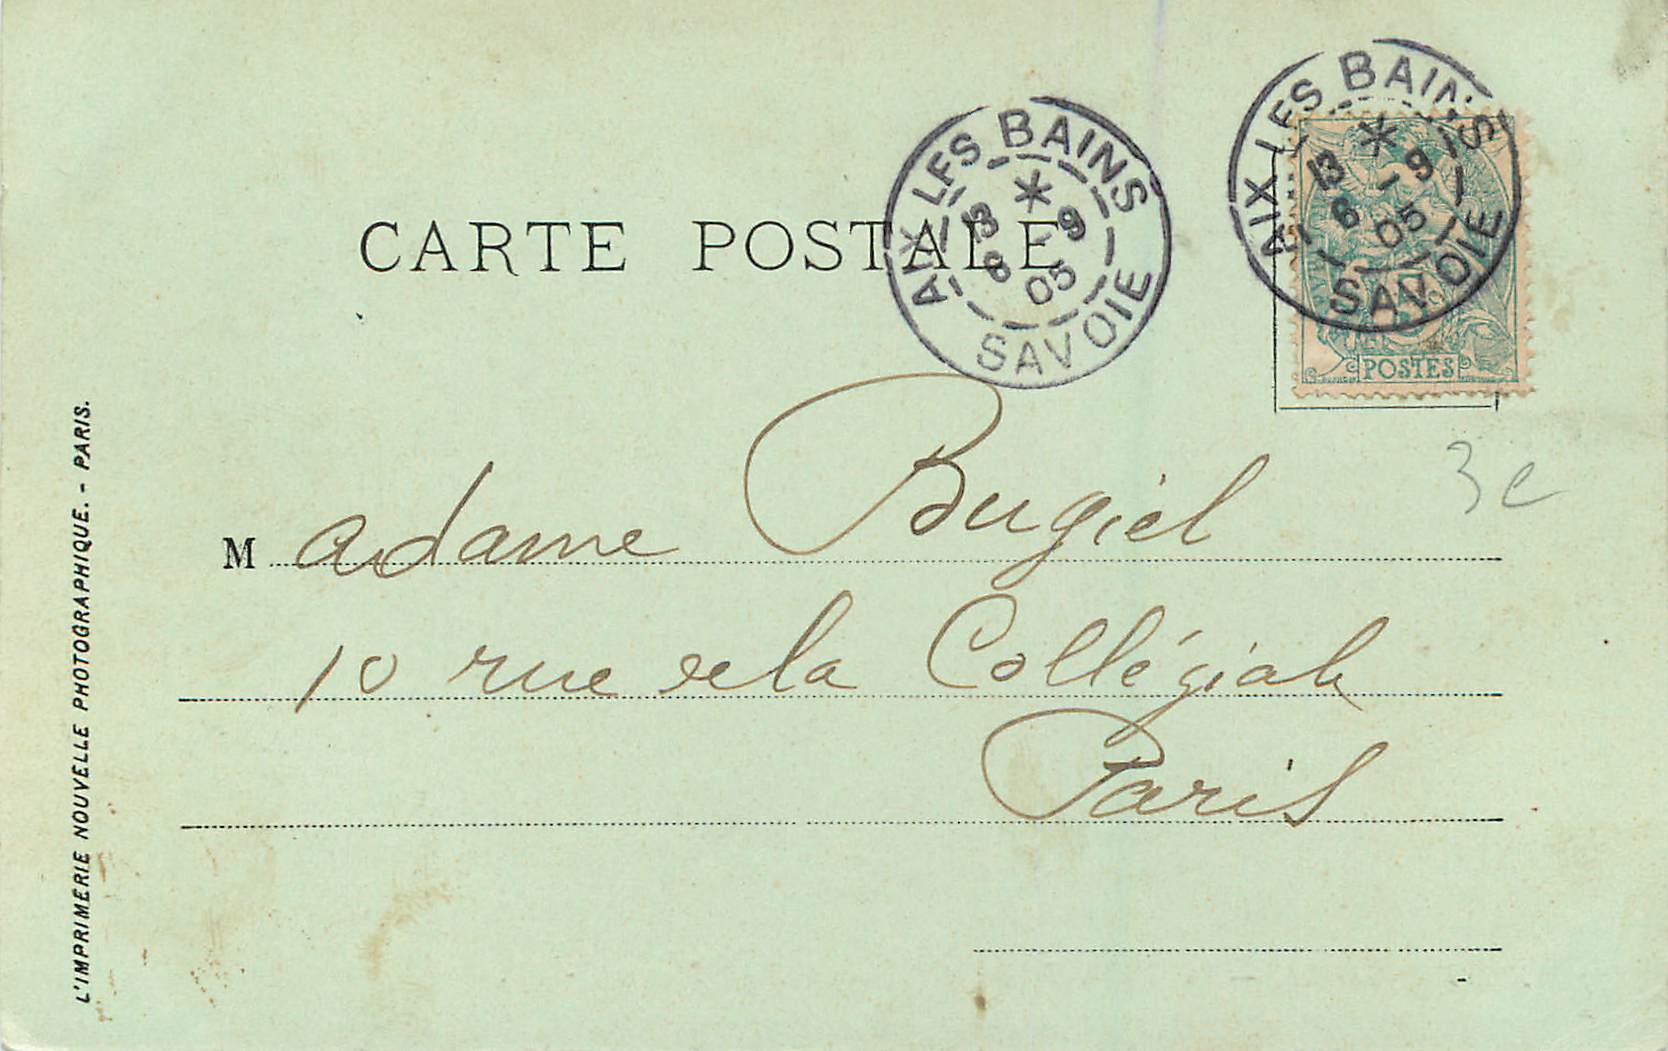 CARTE POSTALE
AIX LES BAINS
13 * 6 -9 05
SAVOIE
AIX LES BAINS
13 * 6 -9 05
SAVOIE
5
POSTES
3e
Madame Bugiel
10 rue de la Collégiale
Paris
L'IMPRIMERIE NOUVELLE PHOTOGRAPHIQUE. - PARIS.